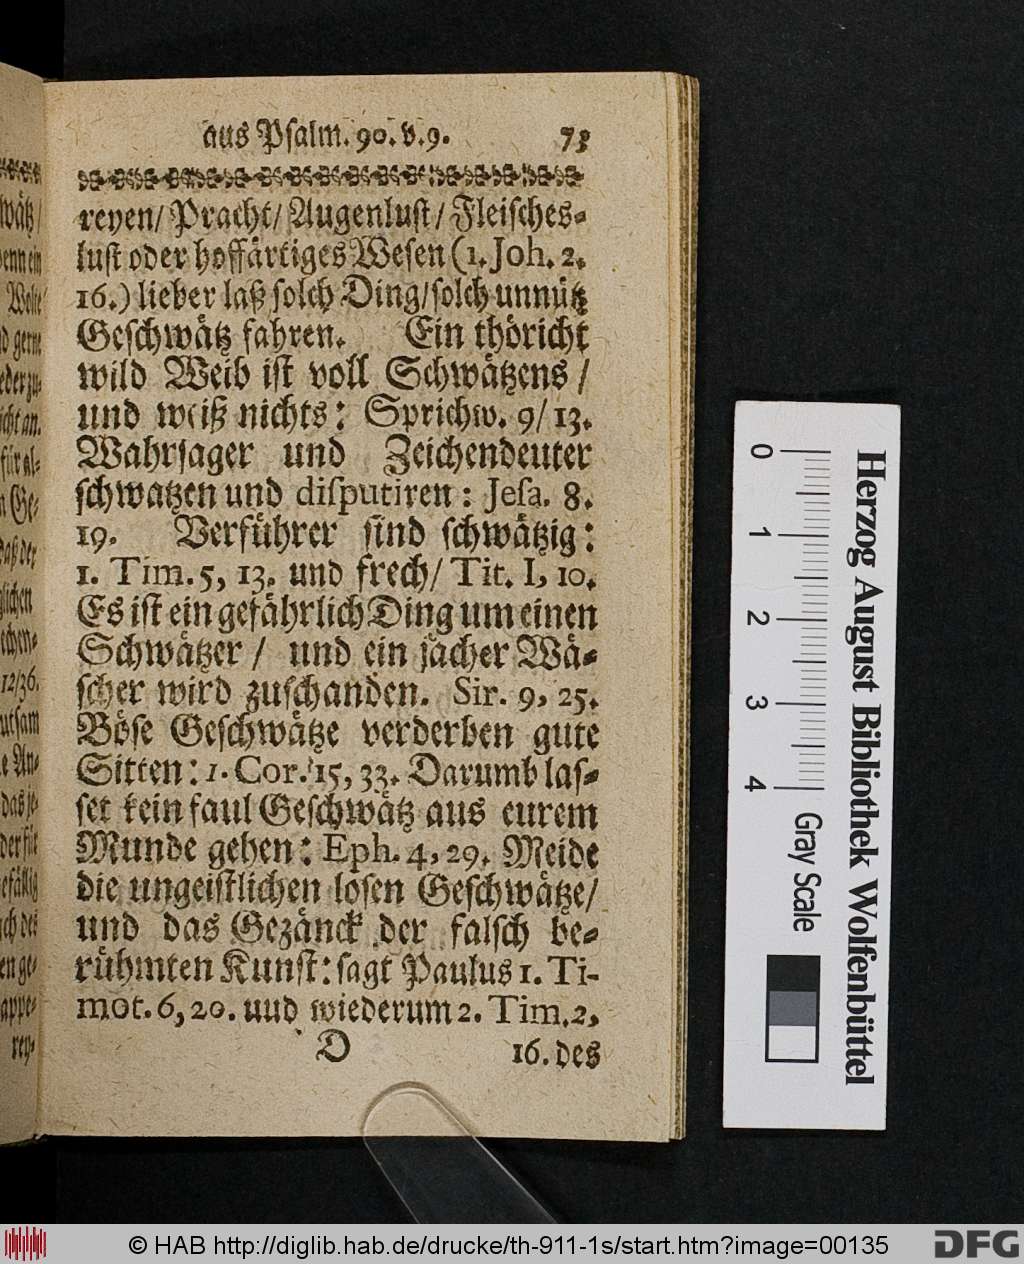 aus Psalm. 90. v. 9. 73
reyen/ Pracht/ Augenlust/ Fleisches-
lust oder hoffärtiges Wesen (1. Joh. 2.
16.) lieber laß solch Ding/ solch unnütz
Geschwätz fahren. Ein thöricht
wild Weib ist voll Schwätzens /
und weiß nichts: Sprichw. 9/ 13.
Wahrsager und Zeichendeuter
schwatzen und disputiren: Jesa. 8.
19. Verführer sind schwätzig:
1. Tim. 5, 13. und frech/ Tit. I, 10.
Es ist ein gefährlich Ding um einen
Schwätzer / und ein jächer Wä-
scher wird zuschanden. Sir. 9, 25.
Böse Geschwätze verderben gute
Sitten: 1. Cor. 15, 33. Darumb las-
set kein faul Geschwätz aus eurem
Munde gehen: Eph. 4, 29. Meide
die ungeistlichen losen Geschwätze/
und das Gezänck der falsch be-
rühmten Kunst: sagt Paulus 1. Ti-
mot. 6, 20. uud wiederum 2. Tim. 2,
D 16. des
wätz/
enn ein
Welt
d gerne
eder zu-
icht an.
für al-
n Ge-
daß der
glichen
echen-
12/36.
utsam
e An-
das je-
der für
efällig
ch des
en ge-
appe-
rey-
0 1 2 3 4
Gray Scale
Herzog August Bibliothek Wolfenbüttel
© HAB http://diglib.hab.de/drucke/th-911-1s/start.htm?image=00135
DFG